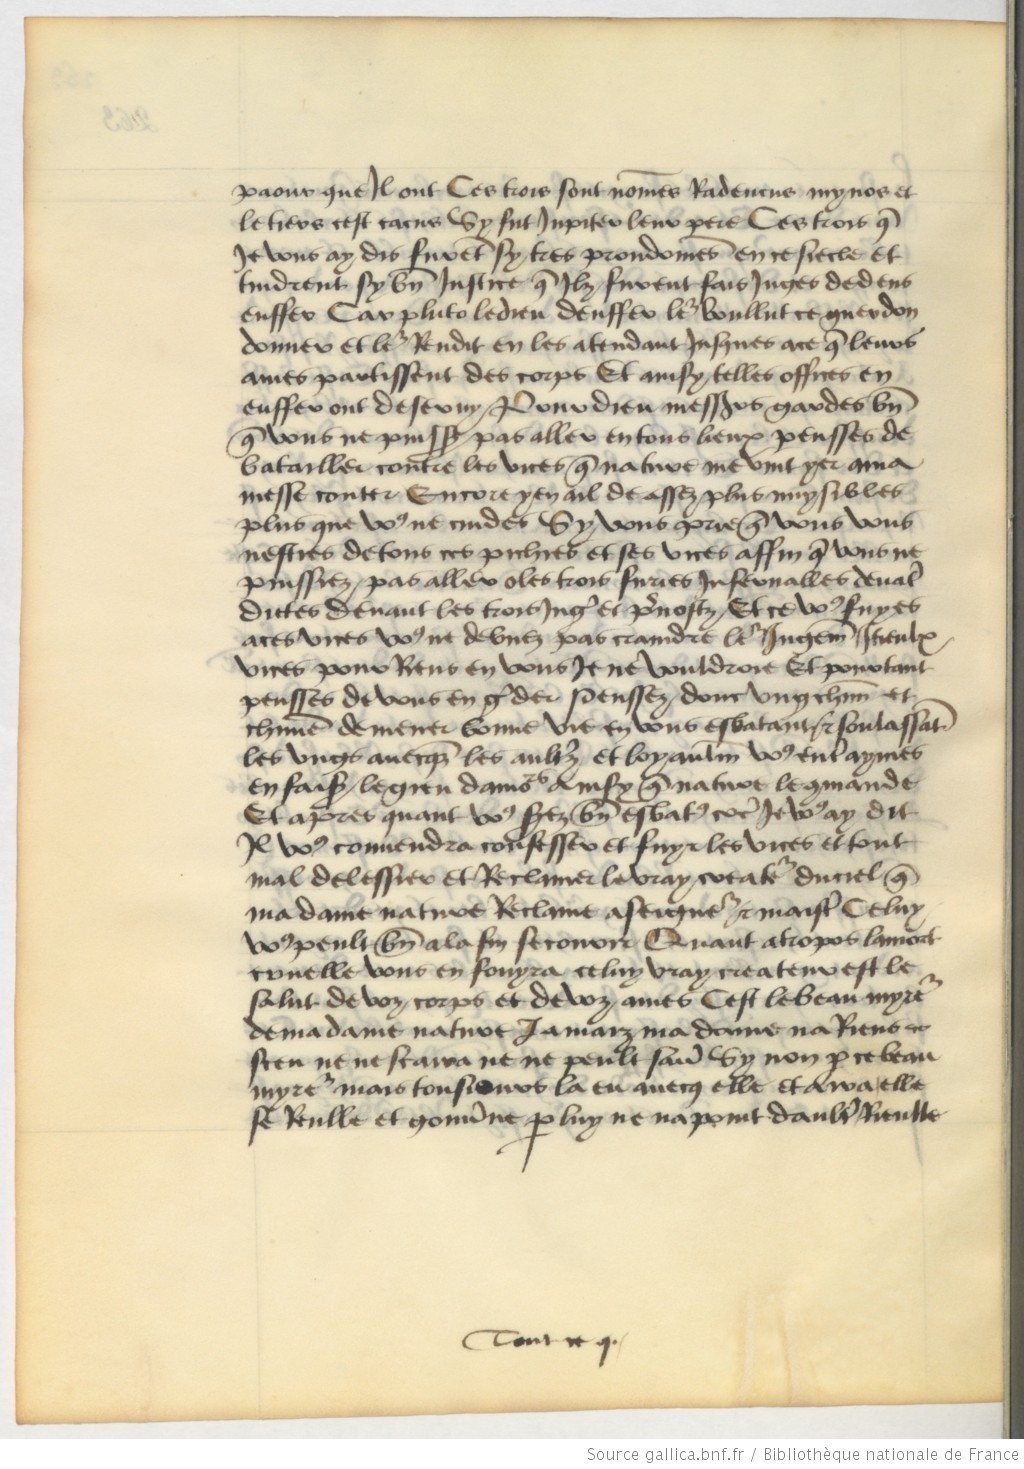 paour que Il ont Ces trois sont nom̄es Radencus mynos et
le tiers cest cacus Sy fut Jupiter leur pere Ces trois q̄
Je vous ay dis furēt sy tres prondōmes en ce siecle et
tindrent sy bn̄ Justice q̄ Ilz furent fais Juges dedens
enffer Car pluto le dieu denffer leᷣ voullut ce guerdon
donner et leᷣ Rendit en les atendant Jusques ace q̄ leurs
ames partissent des corps Et ainsy telles offices en
enffer ont deseruy Pour dieu messrs gardes bn̄
q̄ vous ne puiss pas aller en tous lieux pensses de
batailler contre les vices q̄ nature me vint yer a ma
messe conter Encore yen ail de assez plus nuysibles
plus que vo᷒ ne cuides Sy vous prie q̄ vous vous
nestries de tous ces pichies et ses vices affin q̄ vous ne
puissiez pas aller o les trois furies Infernalles deual
dictes deuant les trois Jug et p̄uostz Et ce vo᷒ fuyes
a ces vices vo᷒ ne deuez pas craindre leᷣ Jugem̄ Itieulx
vices pour Riens en vous Je ne vouldroie Et pourtant
pensses de vous en g der Penssez donc vng chūn et
chūne de mener bonne vie en vous esbatant ⁊ soulassāt
les vngs auecq̄ les aultz et loyaulm̄ vo᷒ ent aymes
en fais le gieu damors Ainsy q̄ nature le 9mande
Et apres quant vo᷒ s bn̄ esbat᷒ cōe Je vo᷒ ay dit
Il vo᷒ conuendra confesser et fuyr les vices et tout
mal delessier et Reclamer le vray createᷣ du ciel q̄
ma dame nature Reclame a seigneᷣ ⁊ maist Celuy
vo᷒ peult bn̄ a la fin secourir Quant atropos la mort
cruelle vous en fouyra celuy vray createur est le
salut de voz corps et de voz ames Cest le beau myreᷣ
de ma dame nature Jamarz ma dame na Riens
sceu ne ne scaura ne ne peult sau Sy non ꝑ ce beau
myreᷣ mais tousiours la eu auecq elle et aura elle
se Reulle et gouu̅ne ꝑ luy ne na point dault Rieulle
Tout ce q.